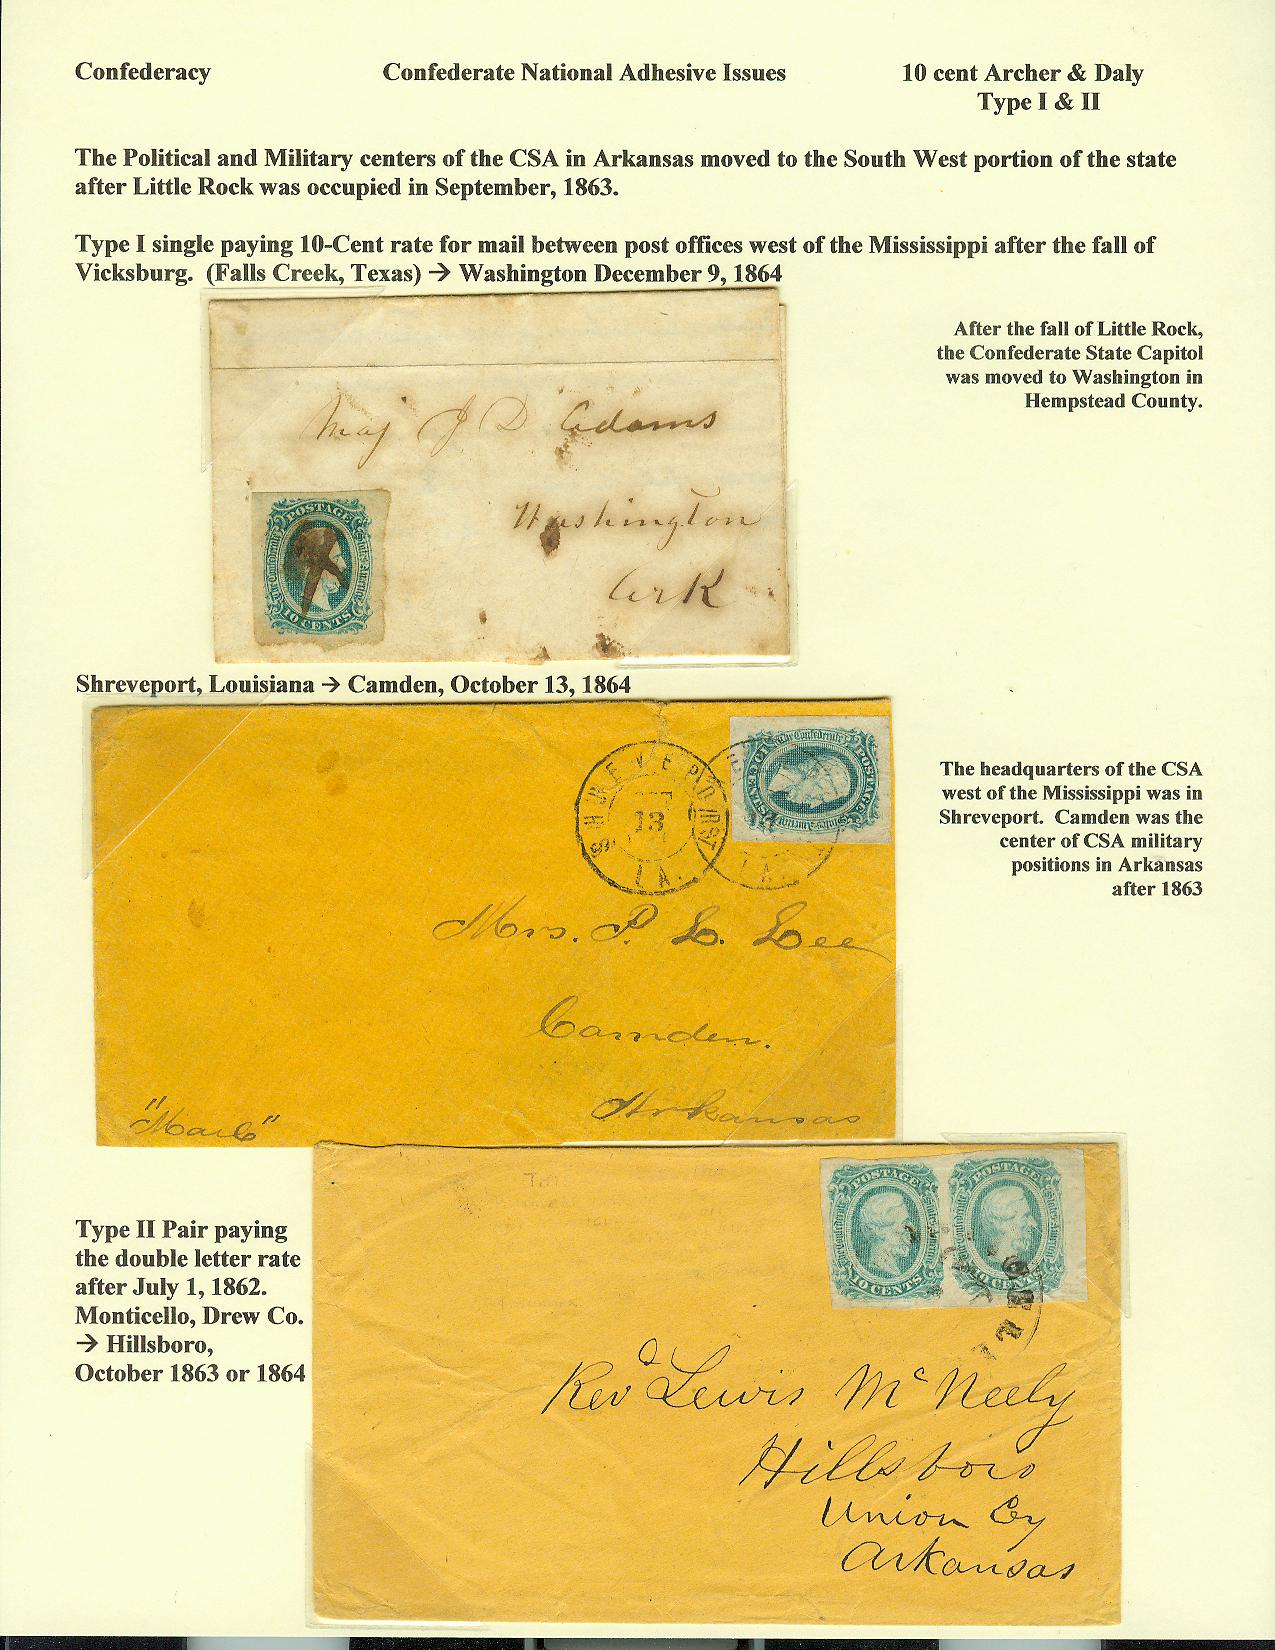 Confederacy
Confederate National Adhesive Issues
10 cent Archer & Daly
Type I & II
The Political and Military centers of the CSA in Arkansas moved to the South West portion of the state
after Little Rock was occupied in September, 1863.
Type I single paying 10-Cent rate for mail between post offices west of the Mississippi after the fall of
Vicksburg. (Falls Creek, Texas) → Washington December 9, 1864
After the fall of Little Rock,
the Confederate State Capitol
was moved to Washington in
Hempstead County.
Maj J D Adams
Washington
Ark
POSTAGE
The Confederate States of America
10 CENTS
Shreveport, Louisiana → Camden, October 13, 1864
SHREVEPORT
13
LA.
LA.
The Confederate States of America
POSTAGE
10 CENTS
The headquarters of the CSA
west of the Mississippi was in
Shreveport. Camden was the
center of CSA military
positions in Arkansas
after 1863
Mrs. P. L. Lee
Camden.
Arkansas
"Mail"
Type II Pair paying
the double letter rate
after July 1, 1862.
Monticello, Drew Co.
→ Hillsboro,
October 1863 or 1864
POSTAGE
The Confederate States of America
10 CENTS
POSTAGE
The Confederate States of America
10 CENTS
Rev Lewis McNeely
Hillsboro
Union Cy
Arkansas